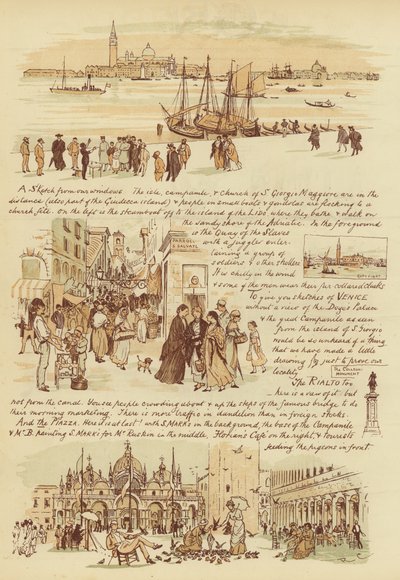 A Sketch from our windows The isle, campanile & Church of S. Giorgio Maggiore are in the
distance (also part of the Giudecca island) & people in small boats & gondolas are flocking to a
church fête. On the left is the steamboat off to the island of the LIDO, where they bathe & walk on
the sandy shore of the Adriatic. In the foreground
is the Quay of the Slaves
with a juggler enter-
taining a group of
soldiers & other strollers
It is chilly in the wind
& some of the men wear their fur collared cloaks
To give you sketches of VENICE
without a view of the Doges Palace
& the great Campanile as seen
from the island of S. Giorgio
would be so unheard of a thing
that we have made a little
drawing of it just to prove our
locality
THE COLLEONI
MONUMENT
The RIALTO too
here is a view of it but
not from the canal. You see people crowding about & up the steps of the famous bridge to do
their morning marketing. There is more traffic in dandelion than in foreign stocks.
And the PIAZZA. Here it is at last! with S. MARKS in the background, the base of the Campanile
& Mr. B. painting S. MARKS for Mr. Ruskin in the middle, Florians Café on the right, & tourists
feeding the pigeons in front